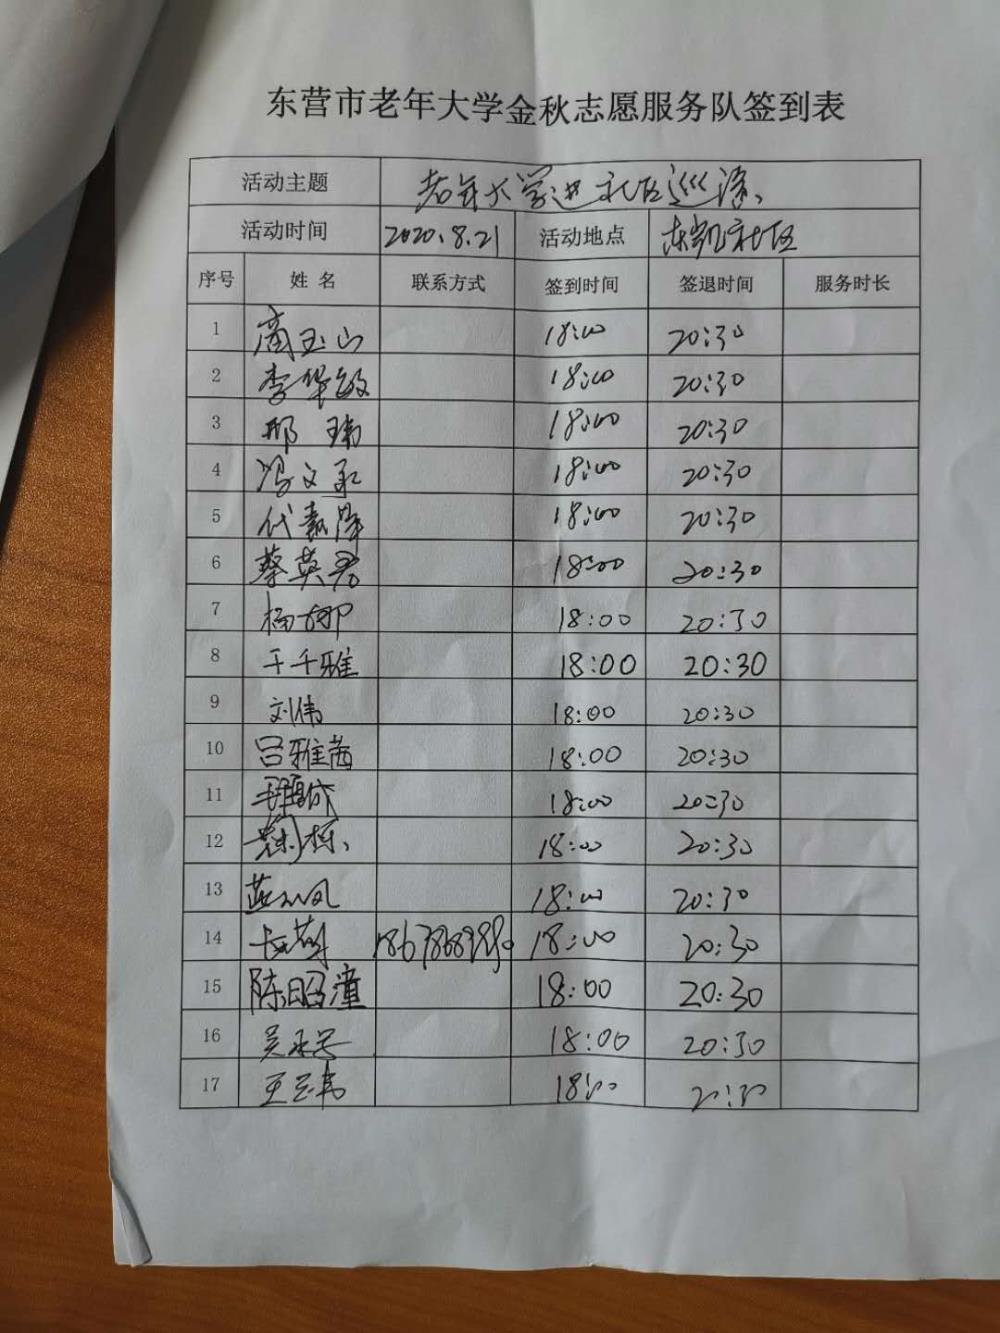 东营市老年大学金秋志愿服务队签到表
活动主题 老年大学进社区巡演
活动时间 2020.8.21 活动地点 东凯社区
序号 姓名 联系方式 签到时间 签退时间 服务时长
1 商玉山 18:00 20:30
2 李华敏 18:00 20:30
3 邢 瑞 18:00 20:30
4 冯文承 18:00 20:30
5 代嘉泽 18:00 20:30
6 蔡英君 18:00 20:30
7 杨娜 18:00 20:30
8 于千雅 18:00 20:30
9 刘伟 18:00 20:30
10 吕雅茜 18:00 20:30
11 18:00 20:30
12 18:00 20:30
13 18:00 20:30
14 18:00 20:30
15 陈昭潼 18:00 20:30
16 吴承学 18:00 20:30
17 王玉伟 18:00 20:30